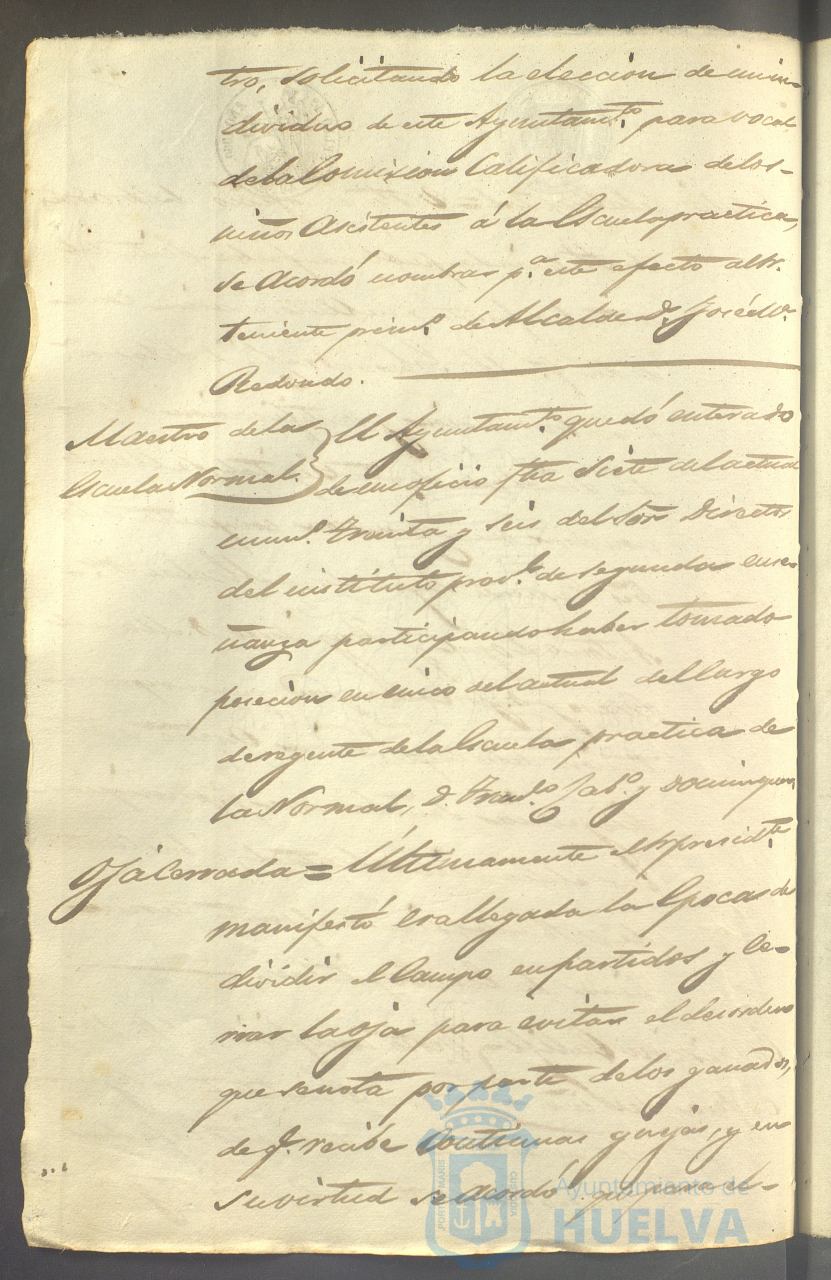 tro, solicitando la eleccion de un in-
dividuo de este Ayuntam.to para vocal
de la Comision Calificadora de los-
niños Asistentes á la Escuela practica,
se Acordó nombrar p.a este efecto al Sr.
teniente prim.o de Alcalde D. José M.a
Redondo.
Maestro de la
Escuela Normal.
El Ayuntam.to quedó enterado
de un oficio fha siete del actual
num.o treinta y seis del Sor Director
del instituto prov.l de segunda ense-
ñanza participando haber tomado
posecion en cinco del actual del Cargo
de regente de la Escuela practica de
la Normal, D. Fran.co Jab.o y Dominguez,
Oja Cerrada =
Ultimamente el Sr president.e
manifestó Era llegada la Epoca de
dividir el Campo en partidos y Ce-
rrar la oja para evitar el desorden
que se nota por parte de los ganados,
de q.e recibe Continuas quejas, y en
su virtud se acordó que para el-
Ayuntamiento de
HUELVA
PORTUS MARIS
CUSTODIA